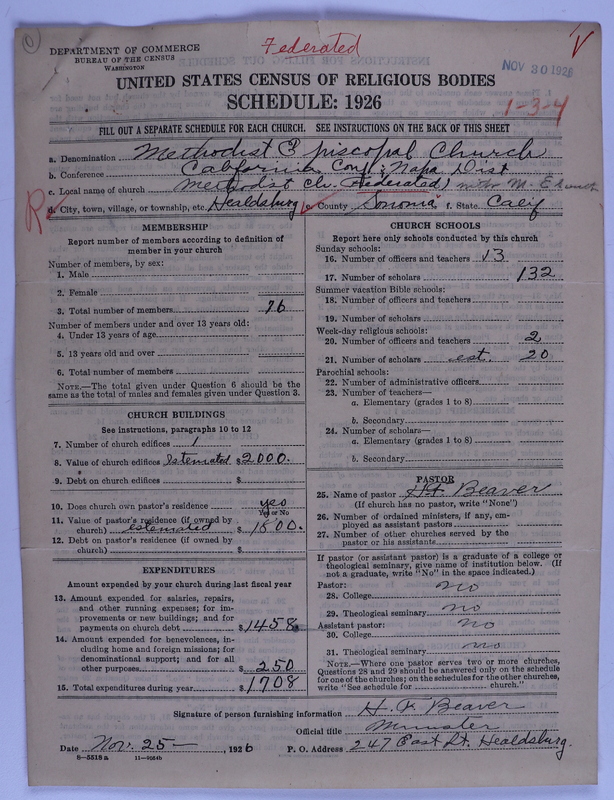 Federated
DEPARTMENT OF COMMERCE
BUREAU OF THE CENSUS
WASHINGTON
NOV 30 1926
UNITED STATES CENSUS OF RELIGIOUS BODIES
SCHEDULE: 1926
1-3-4
FILL OUT A SEPARATE SCHEDULE FOR EACH CHURCH. SEE INSTRUCTIONS ON THE BACK OF THIS SHEET
a. Denomination Methodist Episcopal Church
b. Conference California Conf. Napa Dist
c. Local name of church Methodist Ch. (Federated) M. E Church
d. City, town, village, or township, etc. Healdsburg e. County Sonoma f. State Calif
MEMBERSHIP
Report number of members according to definition of
member in your church
Number of members, by sex:
1. Male
2. Female
3. Total number of members 76
Number of members under and over 13 years old:
4. Under 13 years of age
5. 13 years old and over
6. Total number of members
NOTE.—The total given under Question 6 should be the
same as the total of males and females given under Question 3.
CHURCH BUILDINGS
See instructions, paragraphs 10 to 12
7. Number of church edifices 1
8. Value of church edifices Estemated $2000.
9. Debt on church edifices $
10. Does church own pastor's residence yes
Yes or No
11. Value of pastor's residence (if owned by
church) estemated $1500.
12. Debt on pastor's residence (if owned by
church) $
EXPENDITURES
Amount expended by your church during last fiscal year
13. Amount expended for salaries, repairs,
and other running expenses; for im-
provements or new buildings; and for
payments on church debt $1458.
14. Amount expended for benevolences, in-
cluding home and foreign missions; for
denominational support; and for all
other purposes $250
15. Total expenditures during year $1708
CHURCH SCHOOLS
Report here only schools conducted by this church
Sunday schools:
16. Number of officers and teachers 13
17. Number of scholars 132
Summer vacation Bible schools:
18. Number of officers and teachers
19. Number of scholars
Week-day religious schools:
20. Number of officers and teachers 2
21. Number of scholars est. 20
Parochial schools:
22. Number of administrative officers
23. Number of teachers—
a. Elementary (grades 1 to 8)
b. Secondary
24. Number of scholars—
a. Elementary (grades 1 to 8)
b. Secondary
PASTOR
25. Name of pastor H.F. Beaver
(If church has no pastor, write "None")
26. Number of ordained ministers, if any, em-
ployed as assistant pastors
27. Number of other churches served by the
pastor or his assistants
If pastor (or assistant pastor) is a graduate of a college or
theological seminary, give name of institution below. (If
not a graduate, write "No" in the space indicated.)
Pastor:
28. College no
29. Theological seminary no
Assistant pastor:
30. College no
31. Theological seminary no
NOTE.—Where one pastor serves two or more churches,
Questions 28 and 29 should be answered only on the schedule
for one of the churches; on the schedules for the other churches,
write "See schedule for church."
Signature of person furnishing information H. F. Beaver
Official title Minister
Date Nov. 25—, 1926 P. O. Address 247 East St. Healdsburg.
8—5518a 11—9024b